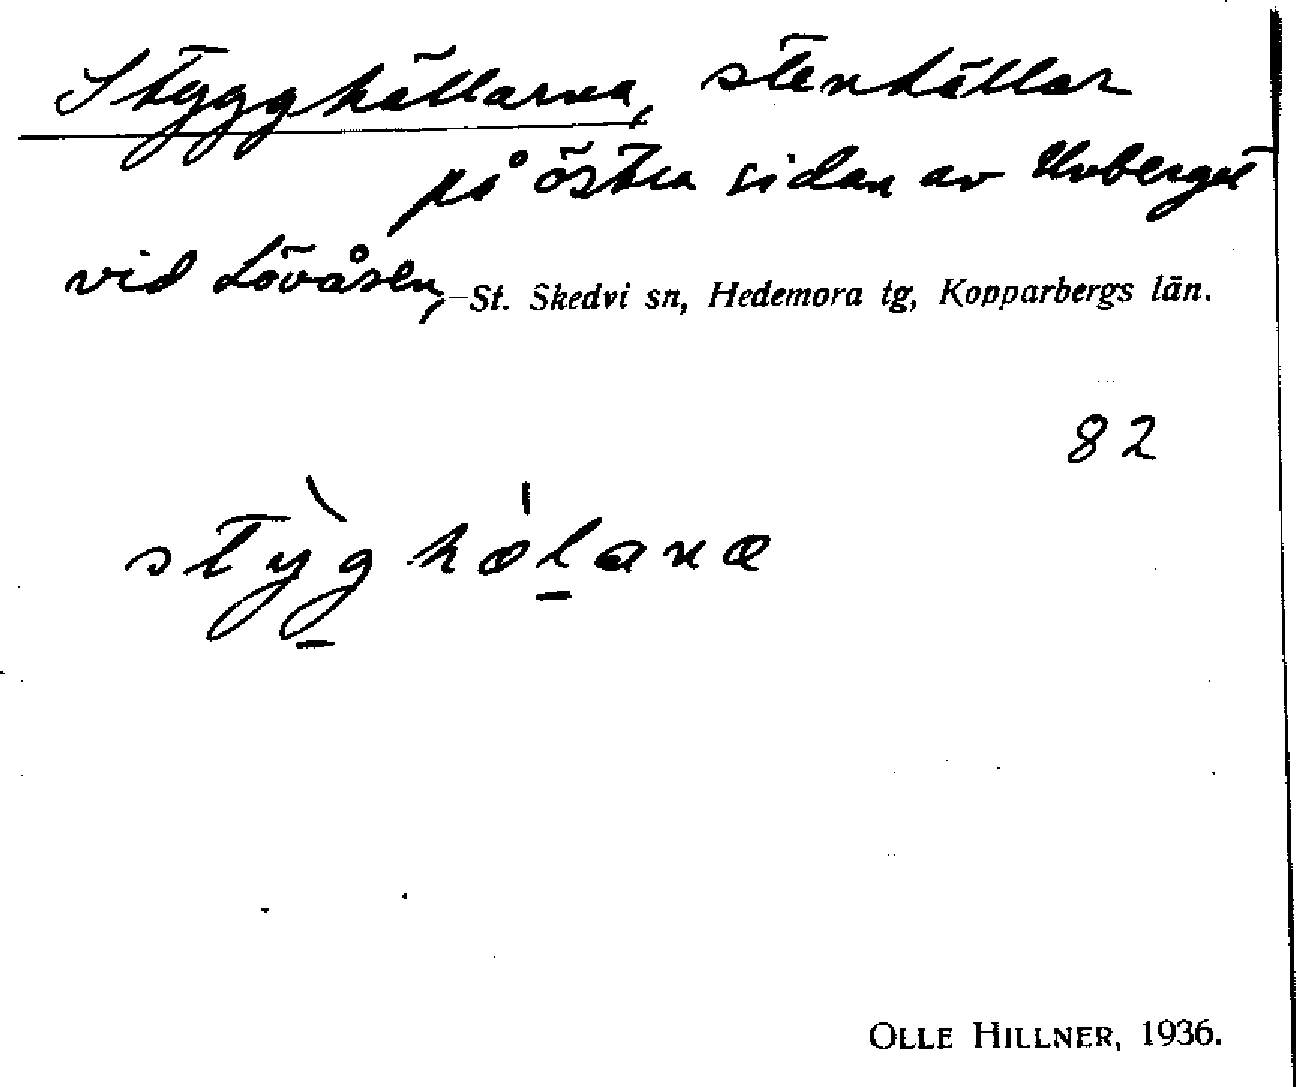 Stygghällarna, stenhällar
på östra sidan av Uvberget
vid Lövåsen, St. Skedvi sn, Hedemora tg, Kopparbergs län.
82
OLLE HILLNER, 1936.